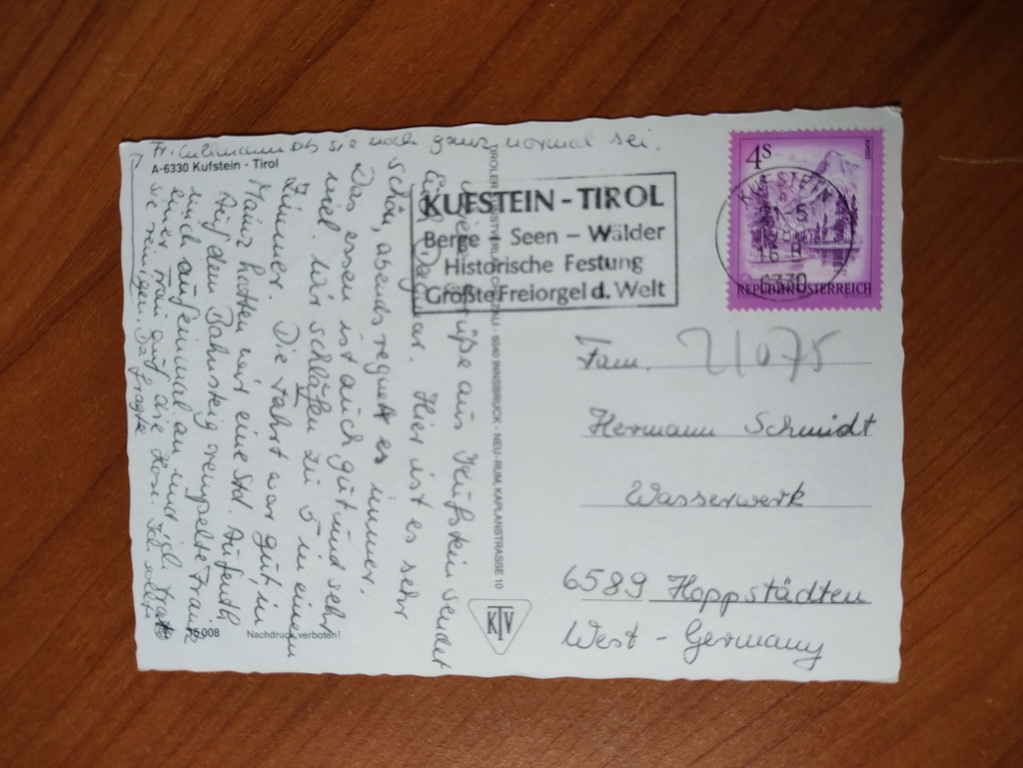 A-6330 Kufstein - Tirol
Viele Grüße aus Kufstein sendet
Euch Dagmar. Hier ist es sehr
schön, abends regnet es immer.
Das essen ist auch gut und sehr
viel. Wir schlafen zu 5 in einem
Zimmer. Die Fahrt war gut, in
Mainz hatten wir eine Std. Aufenth
Auf dem Bahnsteig rempelte Frau
mich auf einmal an und ich
einer Frau auf die Hose. Ich sollte
sie reinigen. Da fragte
Fr. ob sie noch ganz normal sei.
75008
Nachdruck verboten!
TIROLER KUNSTVERLAG CHIZZALI - 6040 INNSBRUCK - NEU-RUM, KAPLANSTRASSE 10
KTV
KUFSTEIN - TIROL
Berge - Seen - Wälder
Historische Festung
Größte Freiorgel d. Welt
4S
REPUBLIK ÖSTERREICH
KUFSTEIN
6330
Fam.
Hermann Schmidt
Wasserwerk
6589 Hoppstädten
West - Germany